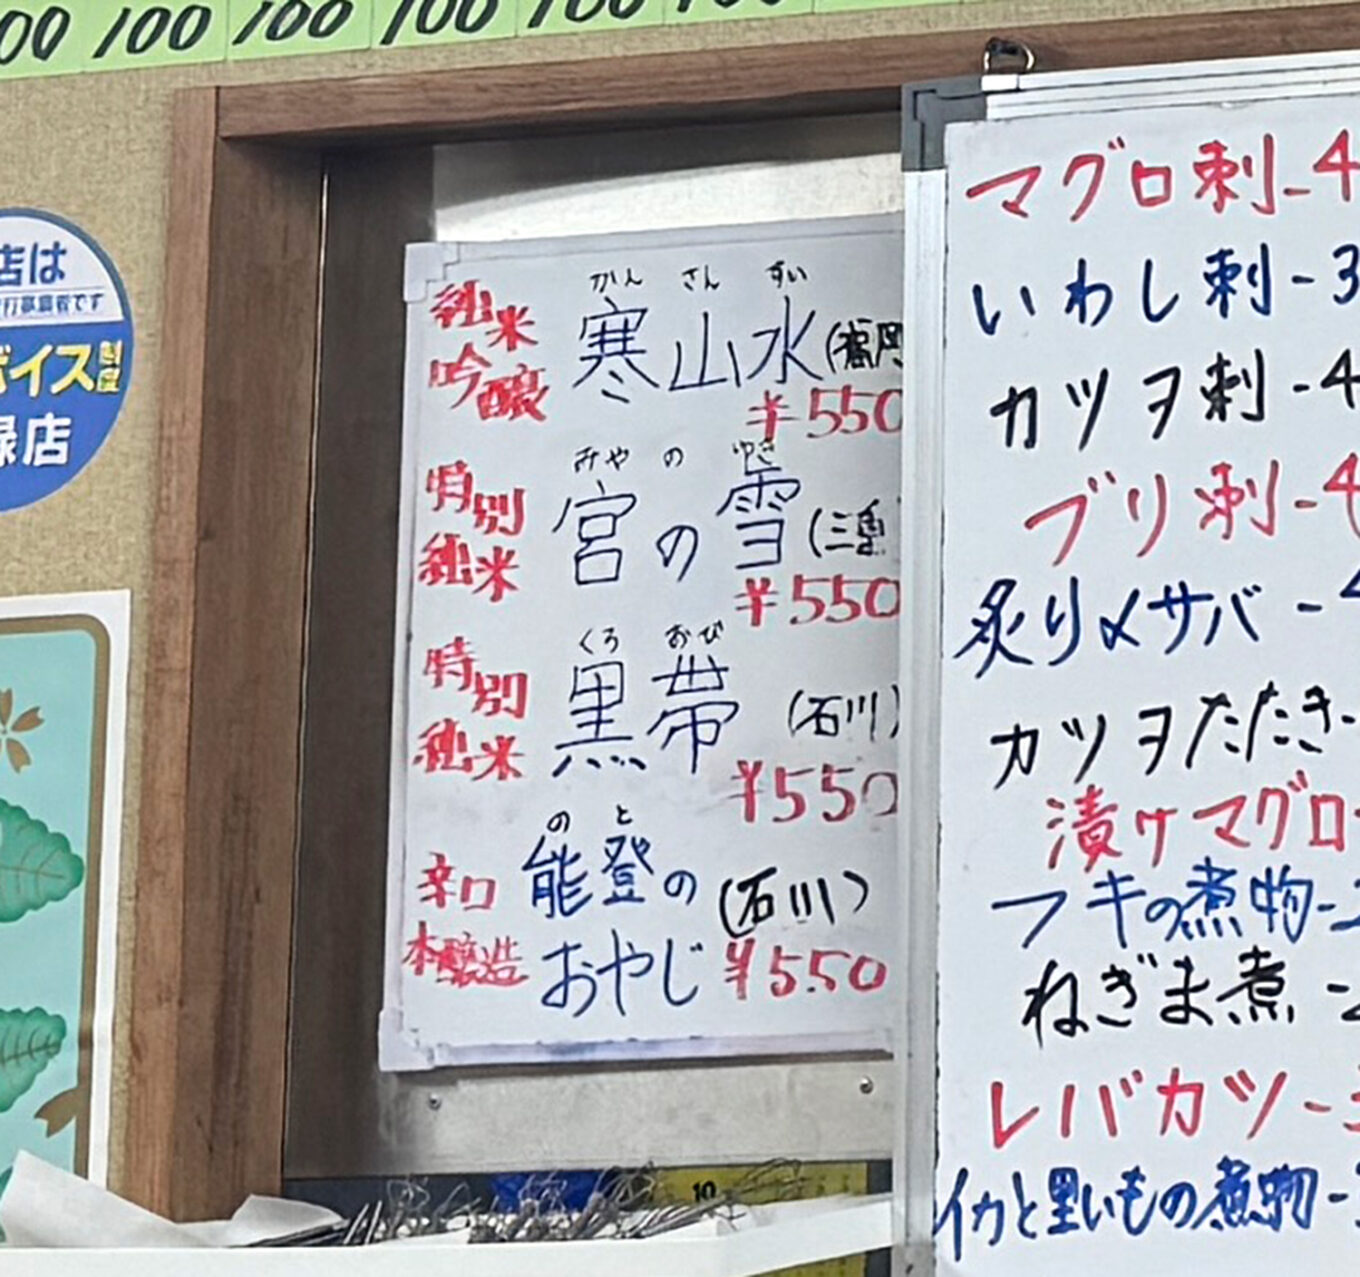 00 100 100 100 100 100
店は
行事業者です
ボイス制度
録店
純米
吟醸
かん さん すい
寒山水(福岡
¥550
特別
純米
みや の ゆき
宮の雪(三重
¥550
特別
純米
くろ おび
黒帯(石川)
¥550
辛口
本醸造
のと
能登の(石川)
おやじ¥550
マグロ刺-4
いわし刺-3
カツヲ刺-4
ブリ刺-4
炙り〆サバ-4
カツヲたたき-
漬ケマグロ-
フキの煮物-
ねぎま煮-
レバカツ-
イカと里いもの煮物-
10